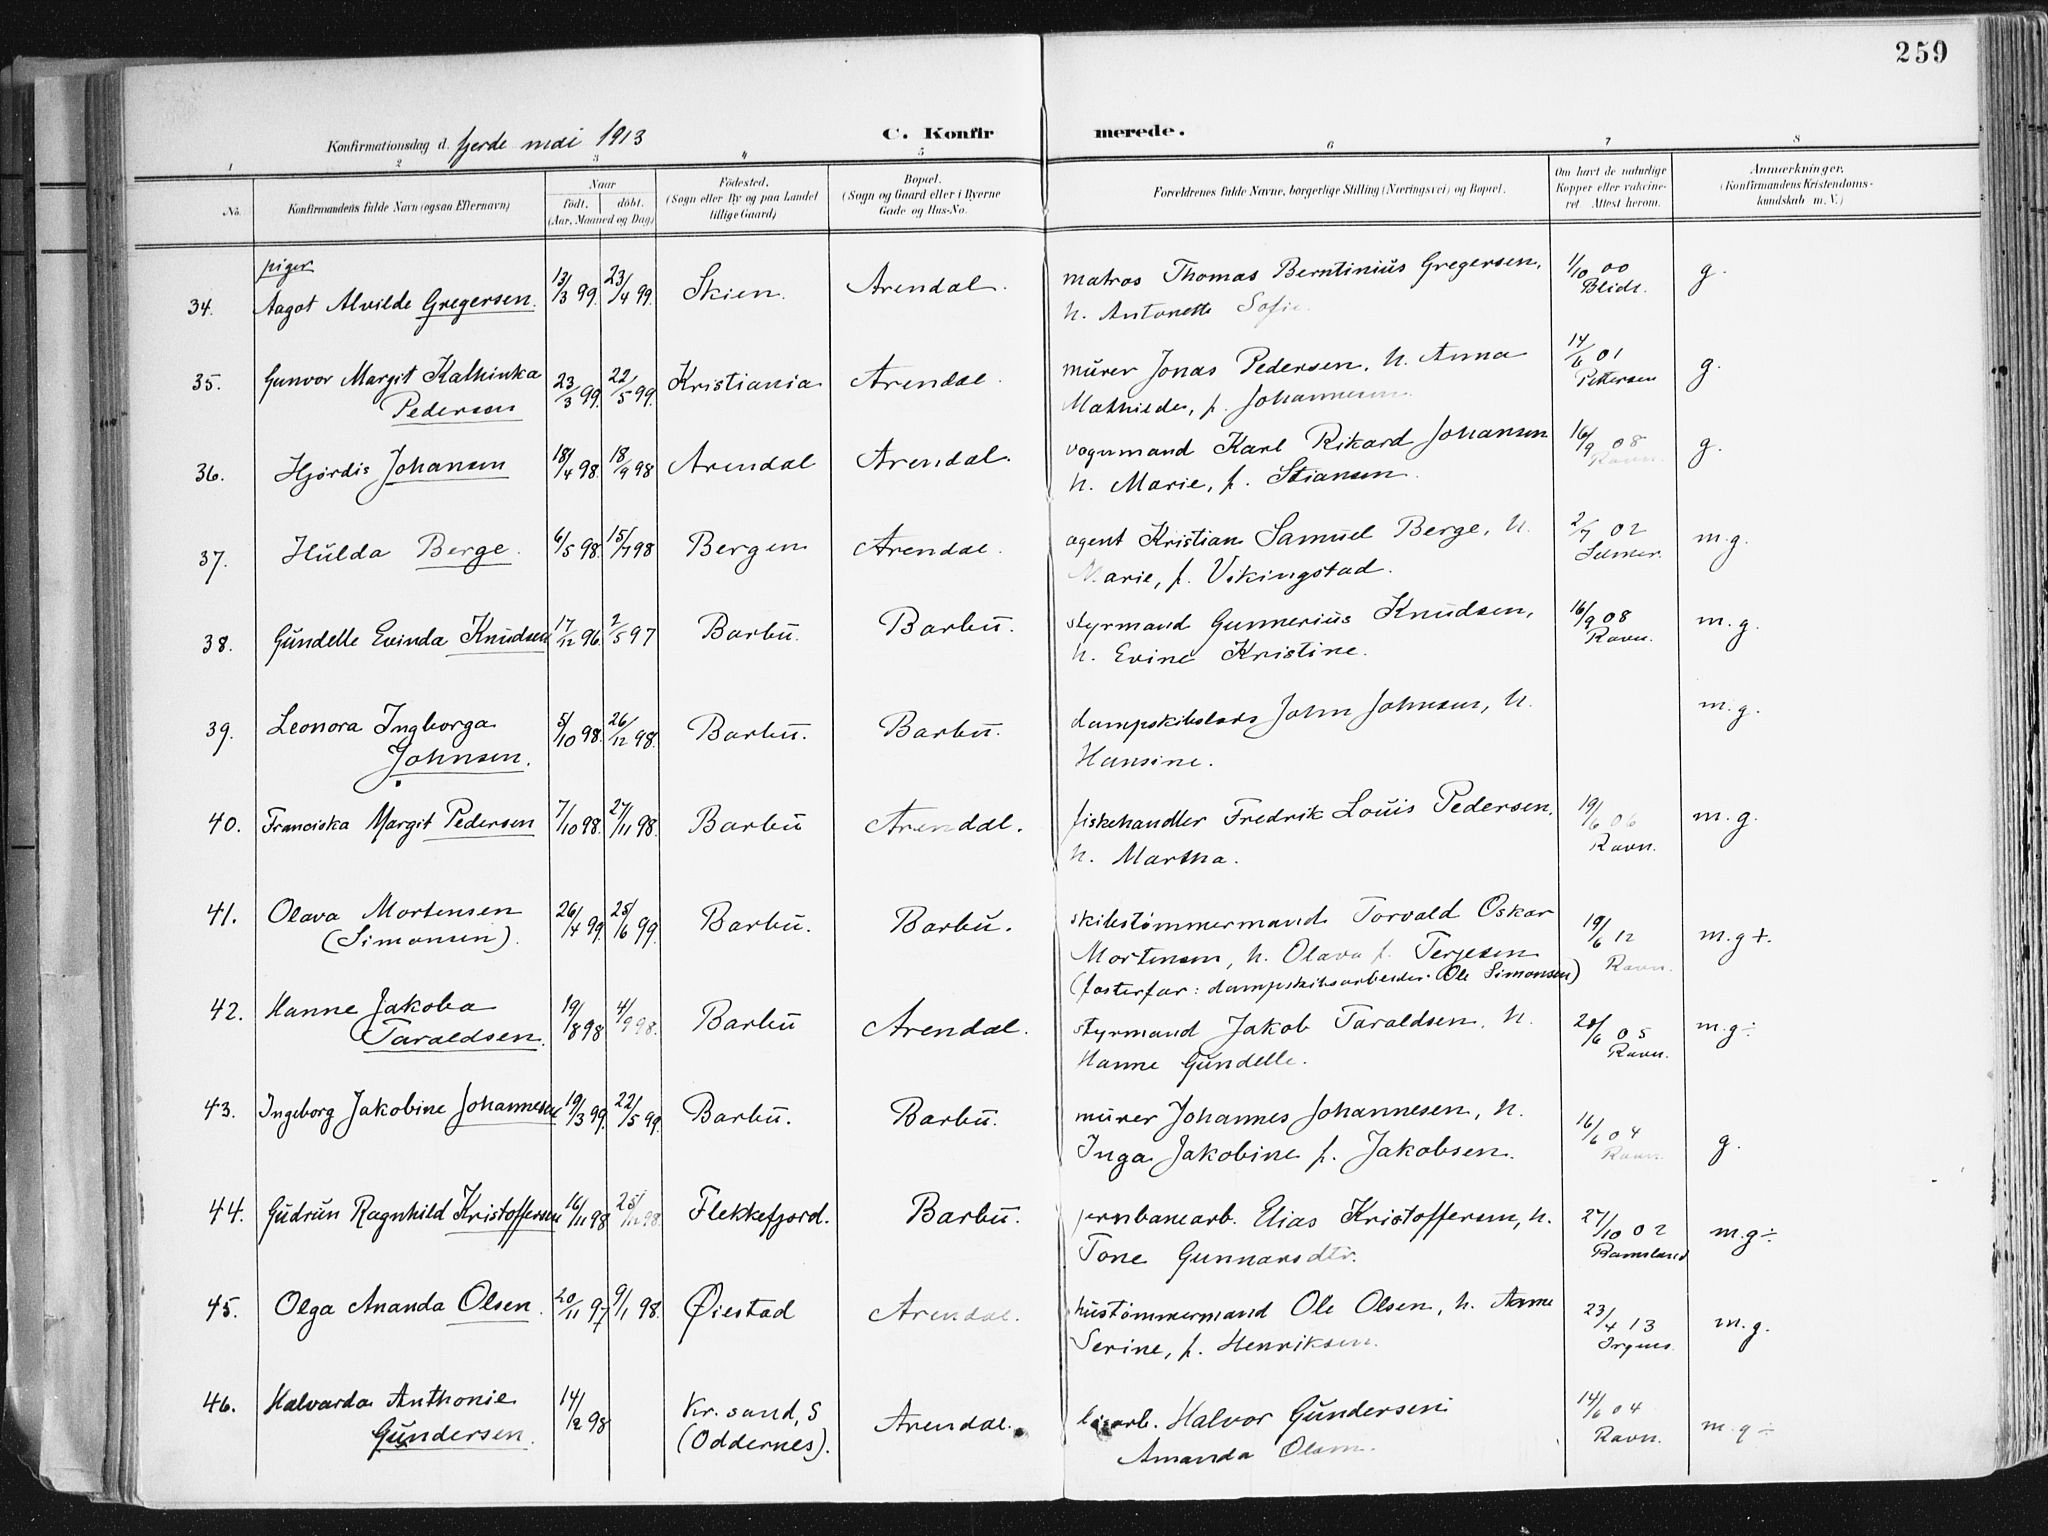 259
Konfirmationsdag d. fjerde mai 1913
C. Konfirmerede.
1 2 3 4 5 6 7 8
No. Konfirmandens fulde Navn (ogsaa Efternavn) Naar født. døbt. (Aar, Maaned og Dag) Fødested. (Sogn eller By og paa Landet tillige Gaard) Bopæl. (Sogn og Gaard eller i Byerne Gade og Hus-No. Forældrenes fulde Navne, borgerlige Stilling (Næringsvei) og Bopæl. Om havt de naturlige Kopper eller vaccineret. Attest herom. Anmærkninger. (Konfirmandens Kristendomskundskab m. V.)
piger
34. Aagot Alvilde Gregersen. 13/3 99. 23/4 99. Skien. Arendal. matros Thomas Berntinius Gregersen, 1/10 00 g.
h. Antonette Sofie. Blidt.
35. Gunvor Margit Kathinka 23/3 99. 22/5 99. Kristiania Arendal. murer Jonas Pedersen, h. Anna 14/6 01 g.
Pedersen Mathilde, f. Johannesen. Pettersen
36. Hjørdis Johansen 18/4 98. 18/9 98 Arendal Arendal. vognmand Karl Rikard Johansen 16/9 08 g.
h. Marie, f. Stiansen. Ravn.
37. Hulda Berge. 6/5 98. 15/7 98 Bergen Arendal. agent Kristian Samuel Berge, h. 2/7 02 m.g.
Marie, f. Vikingstad. Selmer.
38. Gundelle Evinda Knudsen 17/12 96. 2/5 97 Barbu. Barbu. styrmand Gunnerius Knudsen, 16/9 08 m.g.
h. Evine Kristine. Ravn.
39. Leonora Ingborga 5/10 98. 26/12 98. Barbu. Barbu. dampskibsarb John Johnsen, h. m.g.
Johnsen. Hansine.
40. Franciska Margit Pedersen 7/10 98. 27/11 98. Barbu Arendal. fiskehandler Fredrik Louis Pedersen, 19/6 06 m.g.
h. Martha. Ravn.
41. Olava Mortensen 26/4 99. 25/6 99. Barbu. Barbu. skibstømmermand Torvald Oskar 19/6 12 m.g+.
(Simonsen). Mortensen, h. Olava f. Terjesen Ravn.
(fosterfar: dampskibsarbeider Ole Simonsen)
42. Hanne Jakoba 19/8 98 4/9 98. Barbu Arendal. styrmand Jakob Taraldsen, h. 28/6 05 m.g÷
Taraldsen. Hanne Gundelle. Ravn.
43. Ingeborg Jakobine Johannesen 19/3 99. 22/5 99. Barbu. Barbu. murer Johannes Johannesen, h. 16/6 04 g.
Inga Jakobine f. Jakobsen. Ravn.
44. Gudrun Ragnhild Kristoffersen 16/11 98 25/12 98. Flekkefjord. Barbu. jernbanearb. Elias Kristoffersen, h. 27/10 02 m.g÷
Tone Gunnarsdtr. Ramsland
45. Olga Ananda Olsen. 20/11 97 9/1 98. Øiestad Arendal. hustømmermand Ole Olsen, h. Anne 23/4 13 m.g.
Serine, f. Henriksen.
46. Halvarda Anthonie 14/2 98 Kr.sand, S Arendal. Halvor Gundersen: 14/6 04 m.g÷
Gundersen. (Oddernes). Amanda Olsen. Ravn.